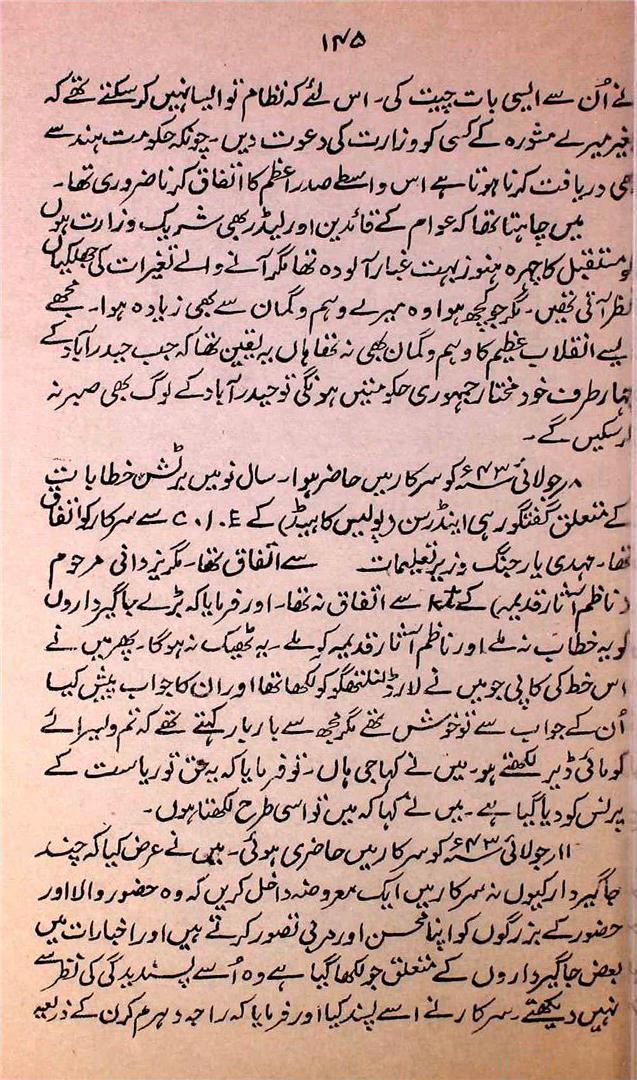 ۱۴۵
نے اُن سے ایسی بات چیت کی۔ اس لئے کہ نظام تو ایسا نہیں کر سکتے تھے کہ
بغیر میرے مشورہ کے کسی کو وزارت کی دعوت دیں۔ چونکہ حکومت ہند سے
بھی دریافت کرنا ہوتا ہے اس واسطے صدر اعظم کا اتفاق کرنا ضروری تھا۔
میں چاہتا تھا کہ عوام کے قائدین اور لیڈر بھی شریک وزارت ہوں
گو مستقبل کا چہرہ ہنوز بہت غبار آلودہ تھا مگر آنے والے تغیرات کی جھلکیاں
نظر آتی تھیں۔ مگر جو کچھ ہوا وہ میرے وہم و گمان سے بھی زیادہ ہوا۔ مجھے
ایسے انقلاب عظیم کا وہم و گمان بھی نہ تھا ہاں یہ یقین تھا کہ جب حیدرآباد کے
چہار طرف خود مختار جمہوری حکومتیں ہونگی تو حیدرآباد کے لوگ بھی صبر نہ
کر سکیں گے۔
۸ر جولائی ۴۳ء؁ کو سرکار میں حاضر ہوا۔ سال نو میں برٹش خطابات
کے متعلق گفتگو رہی اینڈرسن (پولیس کا ہیڈ) کے C.I.E سے سرکار کو اتفاق
تھا۔ مہدی یار جنگ وزیر تعلیمات سے اتفاق تھا۔ مگر یزدانی مرحوم
(ناظم آثار قدیمہ) کے kt سے اتفاق نہ تھا۔ اور فرمایا کہ بڑے جاگیرداروں
کو یہ خطاب نہ ملے اور ناظم آثار قدیمہ کو ملے۔ یہ ٹھیک نہ ہوگا۔ پھر میں نے
اس خط کی کاپی جو میں نے لارڈ لنلتھگو کو لکھا تھا اور ان کا جواب پیش کیا
اُن کے جواب سے تو خوش تھے مگر مجھ سے بار بار کہتے تھے کہ تم ویسرائے
کو مائی ڈیر لکھتے ہو۔ میں نے کہا جی ہاں۔ تو فرمایا کہ یہ حق تو ریاست کے
پرنس کو دیا گیا ہے۔ میں نے کہا کہ میں تو اسی طرح لکھتا ہوں۔
۱۱ر جولائی ۴۳ء؁ کو سرکار میں حاضری ہوئی۔ میں نے عرض کیا کہ چند
جاگیردار کیوں نہ سرکار میں ایک معروضہ داخل کریں کہ وہ حضور والا اور
حضور کے بزرگوں کو اپنا محسن اور مربی تصور کرتے ہیں اور اخبارات میں
بعض جاگیرداروں کے متعلق جو لکھا گیا ہے وہ اُسے پسندیدگی کی نظر سے
نہیں دیکھتے۔ سرکار نے اسے پسند کیا اور فرمایا کہ راجہ دہرم کرن کے ذریعہ